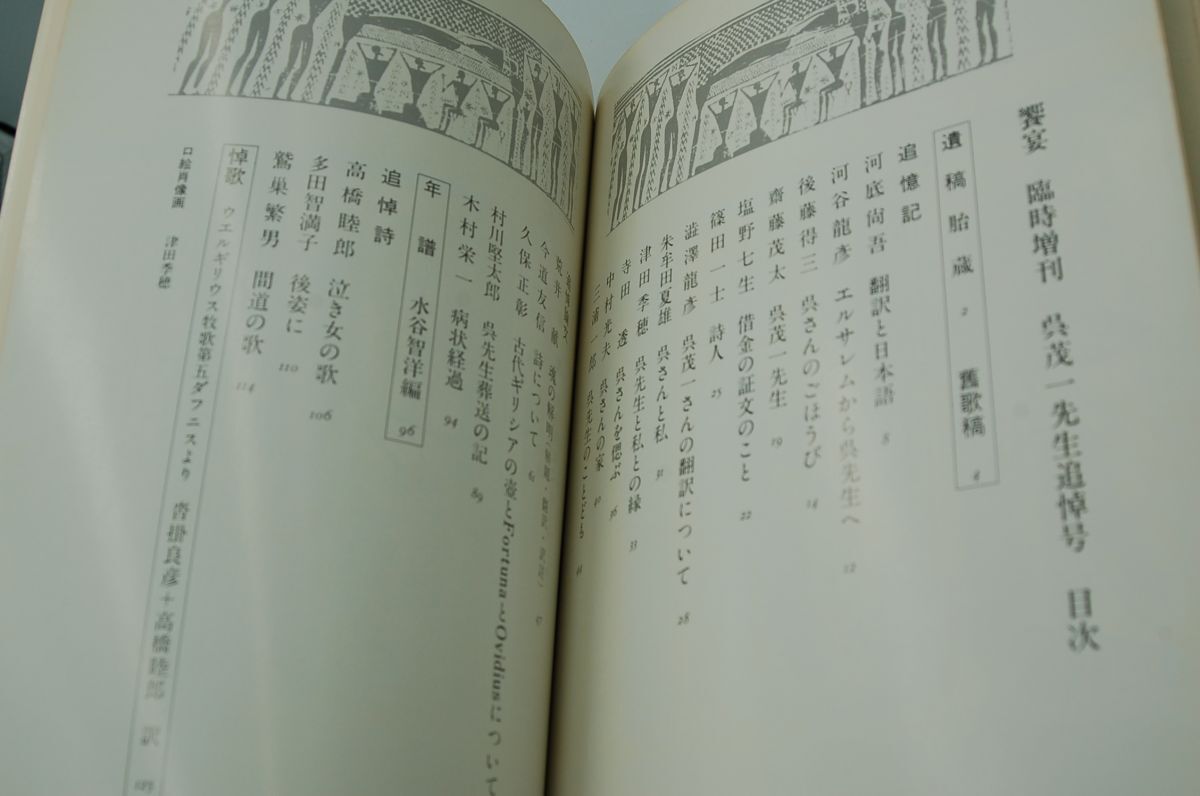 饗宴 臨時増刊 呉茂一先生追悼号 目次
遺稿 胎蔵 2 舊歌稿 4
追憶記
河底尚吾 翻訳と日本語 8
河谷龍彦 エルサレムから呉先生へ 12
後藤得三 呉さんのごほうび 14
齋藤茂太 呉茂一先生 19
塩野七生 借金の証文のこと 22
篠田一士 詩人 25
澁澤龍彦 呉茂一さんの翻訳について 28
朱牟田夏雄 呉さんと私 31
津田季穂 呉先生と私との縁 33
寺田 透 呉さんを偲ぶ 36
中村光夫 呉さんの家 40
三浦一郎 呉先生のことども 44
追悼論文
荒井 献 魂の解明(解題・翻訳・訳註) 47
今道友信 詩について 61
久保正彰 古代ギリシアの壺とFortunaとOvidiusについて
村川堅太郎 呉先生葬送の記 89
木村栄一 病状経過 94
年譜 水谷智洋編 96
追悼詩
高橋睦郎 泣き女の歌 106
多田智満子 後姿に 110
鷲巣繁男 間道の歌 114
悼歌 ウエルギリウス牧歌第五ダフニスより 沓掛良彦+高橋睦郎 訳
口絵肖像画 津田季穂